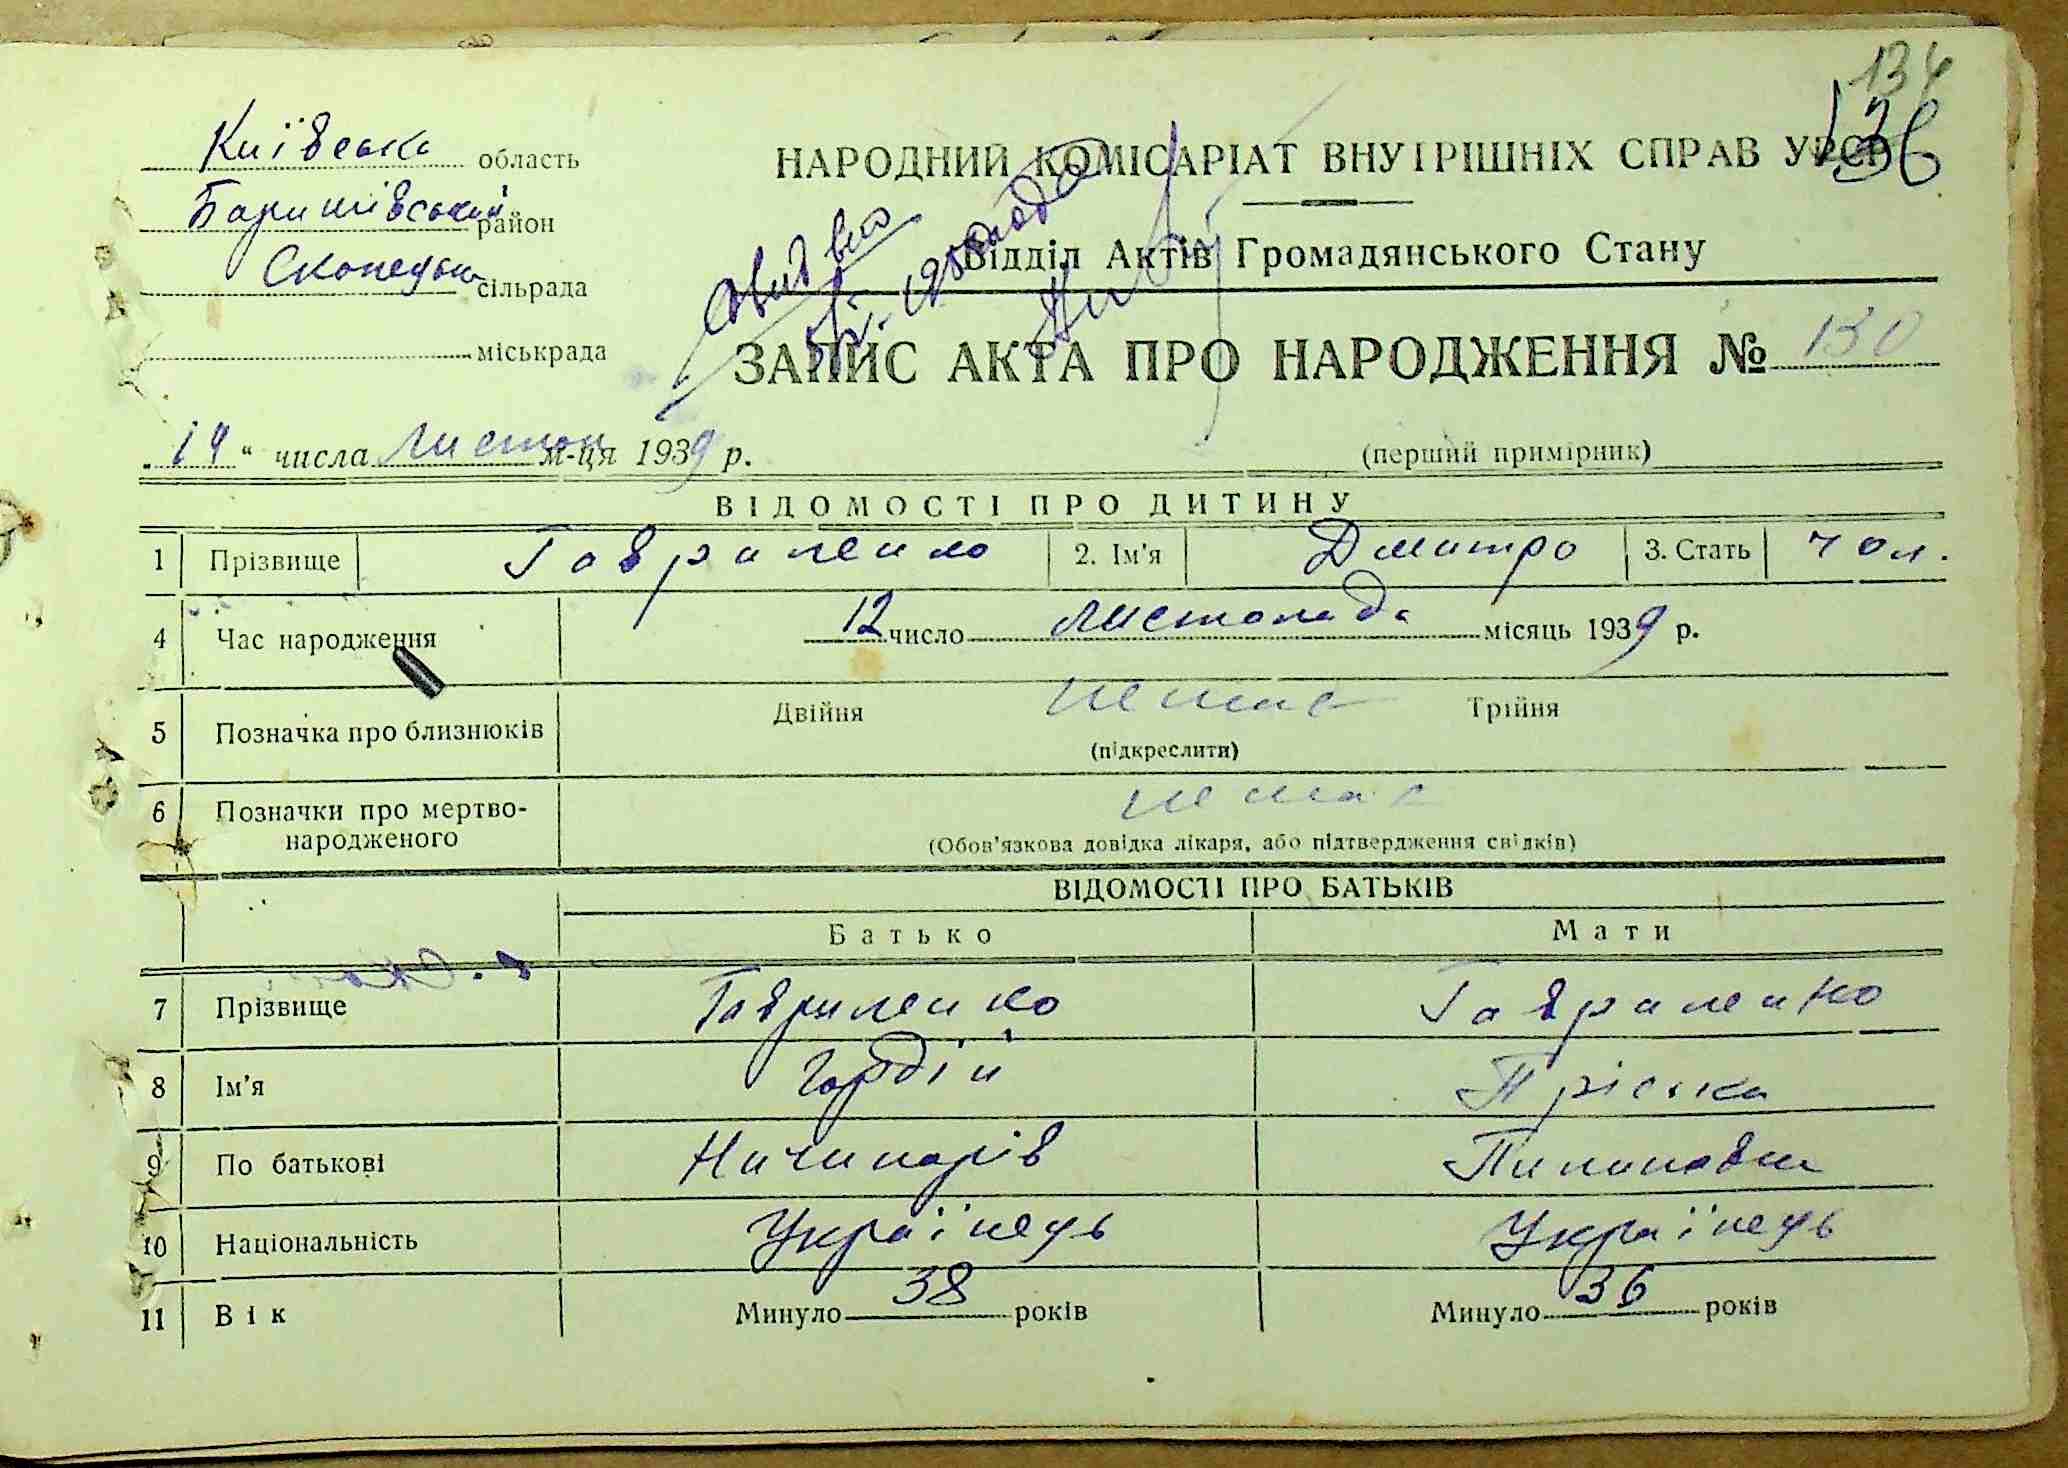 134
136
Київська область
Баришівський район
Скопецька сільрада
міськрада
НАРОДНИЙ КОМІСАРІАТ ВНУТРІШНІХ СПРАВ УРСР
Відділ Актів Громадянського Стану
ЗАПИС АКТА ПРО НАРОДЖЕННЯ № 130
„14“ числа листоп м-ця 1939 р.
(перший примірник)
ВІДОМОСТІ ПРО ДИТИНУ
1 Прізвище Гавриленко 2. Ім'я Дмитро 3. Стать чол.
4 Час народження 12 число листопада місяць 1939 р.
5 Позначка про близнюків Двійня немає Трійня
(підкреслити)
6 Позначки про мертво-
народженого
немає
(Обов'язкова довідка лікаря, або підтвердження свідків)
ВІДОМОСТІ ПРО БАТЬКІВ
Батько Мати
7 Прізвище Гавриленко Гавриленко
8 Ім'я Гордій Пріська
9 По батькові Ничипорів Пилиповна
10 Національність Українець Українець
11 Вік Минуло 38 років Минуло 36 років